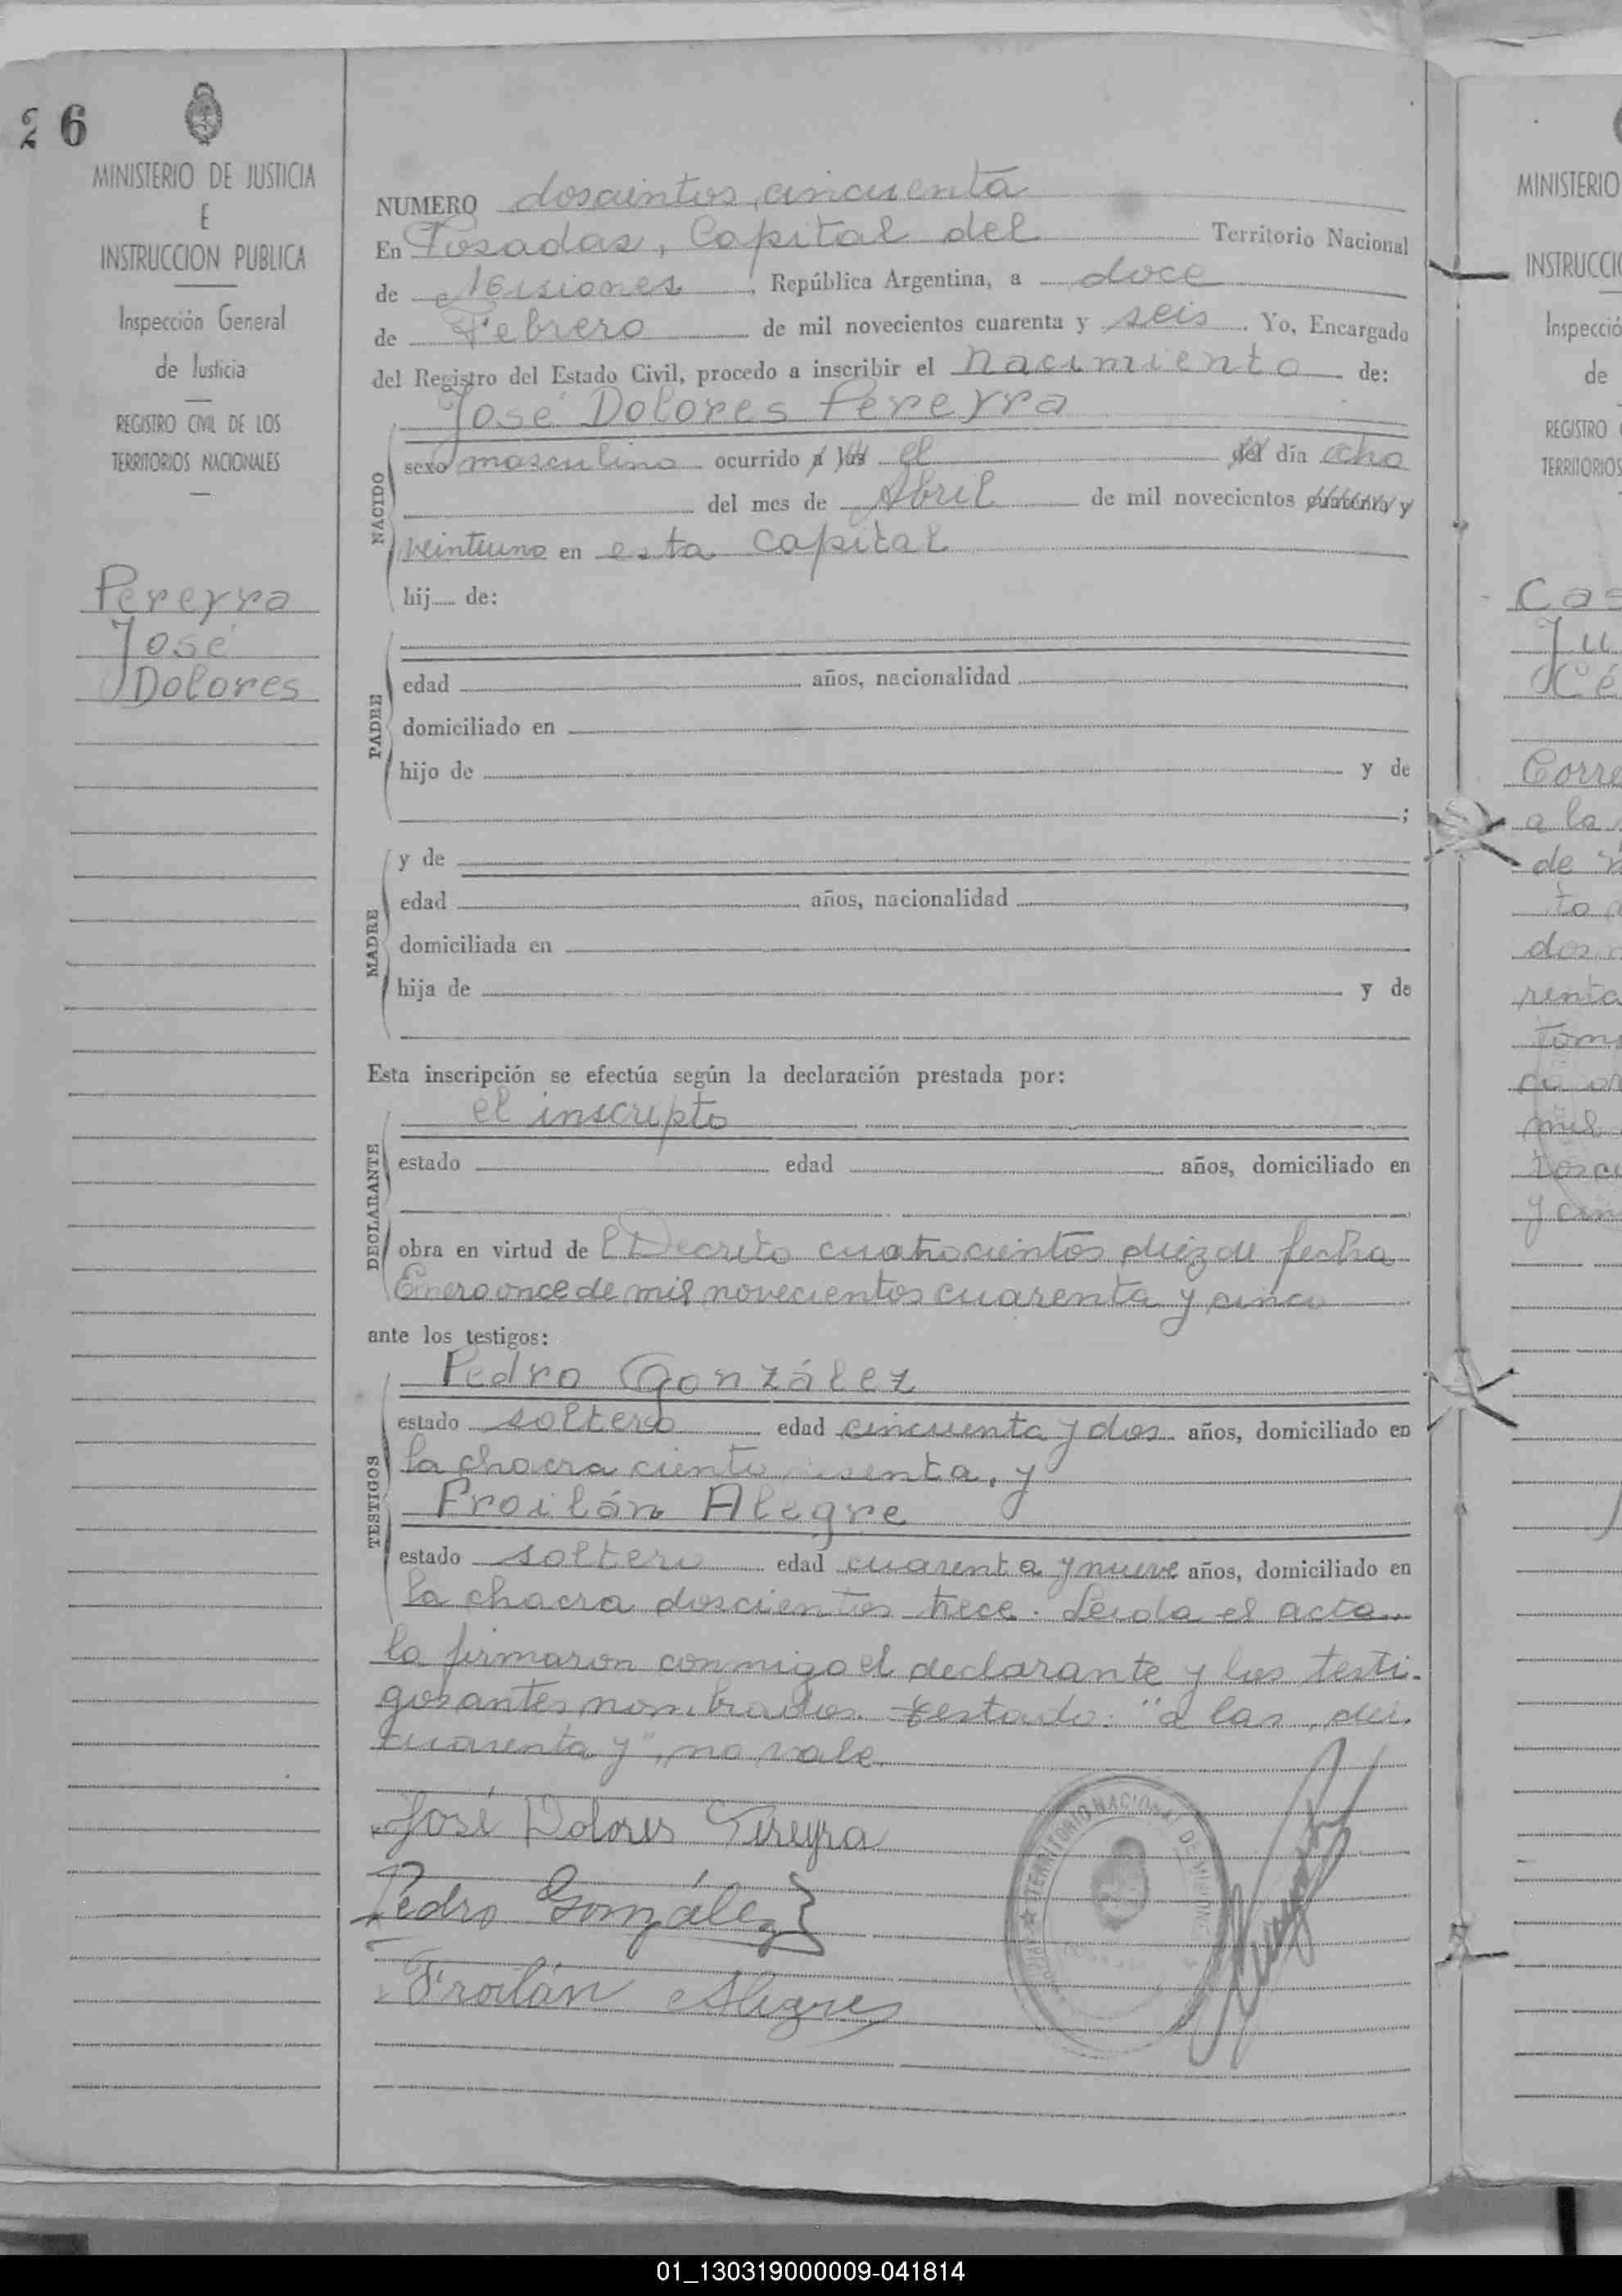 26
MINISTERIO DE JUSTICIA
E
INSTRUCCION PUBLICA
Inspección General
de Justicia
REGISTRO CIVIL DE LOS
TERRITORIOS NACIONALES
Pereyra
José
Dolores
NUMERO doscientos cincuenta
En Posadas, Capital del Territorio Nacional
de Misiones, República Argentina, a doce
de Febrero de mil novecientos cuarenta y seis. Yo, Encargado
del Registro del Estado Civil, procedo a inscribir el nacimiento de:
José Dolores Pereyra
NACIDO
sexo masculino ocurrido a las el del día ocho
del mes de Abril de mil novecientos cuarenta y
veintiuno en esta Capital
hij de:
PADRE
edad años, nacionalidad
domiciliado en
hijo de y de
;
MADRE
y de
edad años, nacionalidad
domiciliada en
hija de y de
Esta inscripción se efectúa según la declaración prestada por:
el inscripto
DECLARANTE
estado edad años, domiciliado en
obra en virtud de l Decreto cuatrocientos diez de fecha
Enero once de mil novecientos cuarenta y cinco
ante los testigos:
Pedro González
TESTIGOS
estado soltero edad cincuenta y dos años, domiciliado en
la chacra ciento y
Froilán Alegre
estado soltero edad cuarenta y nueve años, domiciliado en
la chacra doscientos trece. Leida el acta
la firmaron conmigo el declarante y los testi-
gos antes nombrados. testado: "a las, del,
cuarenta y", no vale.
José Dolores Pereyra
Pedro González
Froilán Alegre
TERRITORIO NACIONAL DE MISIONES
MINISTERIO
INSTRUCCI
Inspecció
de
REGISTRO
TERRITORIOS
Cas
Ju
Cé
Corre
a la
de
to
dos
renta
tom
mil
y cin
01_130319000009-041814